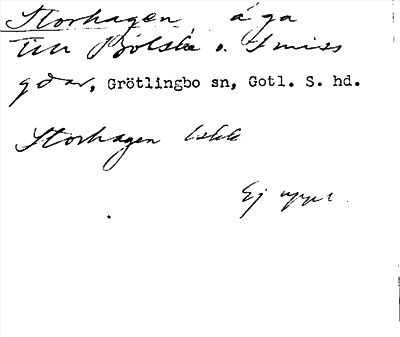 Storhagen äga
till Bölske o. Smiss
gdar, Grötlingbo sn, Gotl. S. hd.
Storhagen
Ej uppt.